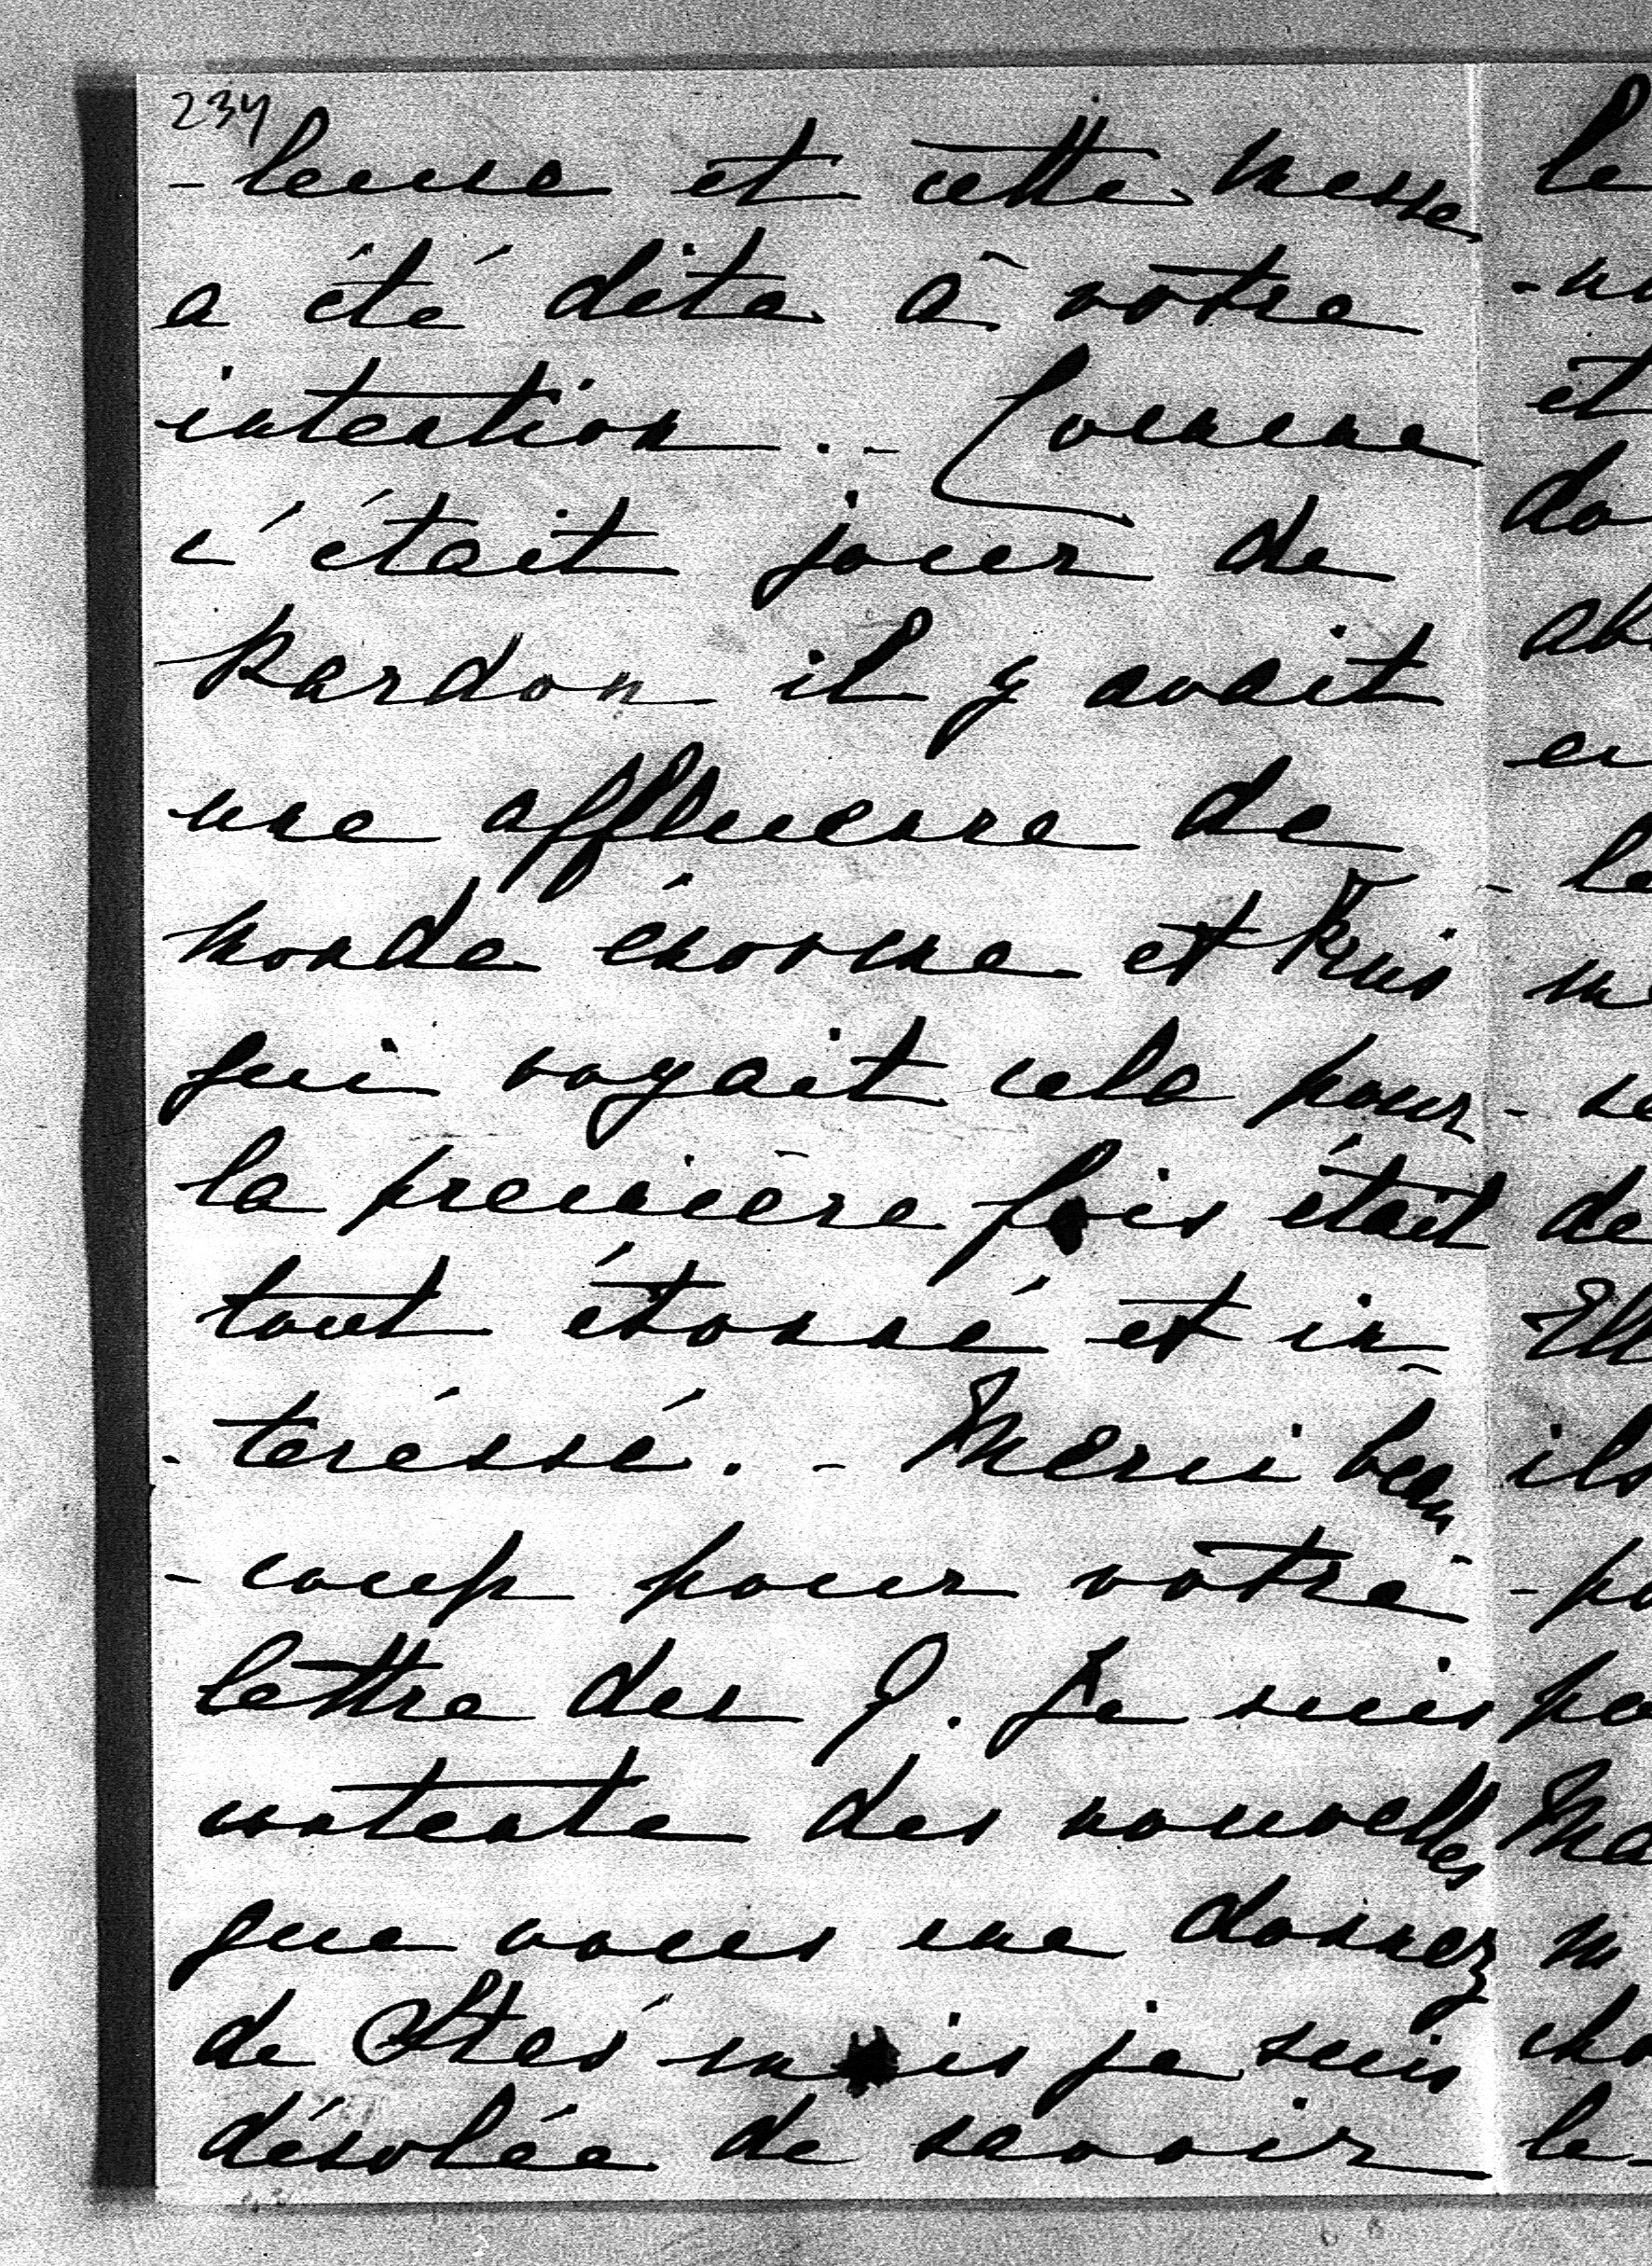 234
-leuse et cette messe
a été dite à votre
intention. - Comme
c'était jour de
Pardon il y avait
une affluence de
monde énorme et Kuis
qui voyait cela pour
la première fois était
tout étonné et in
-teréssé. - Merci beau
-coup pour votre
lettre des 9. Je suis
contente des nouvelles
que vous me donnez
de mais je suis
désolée de savoir